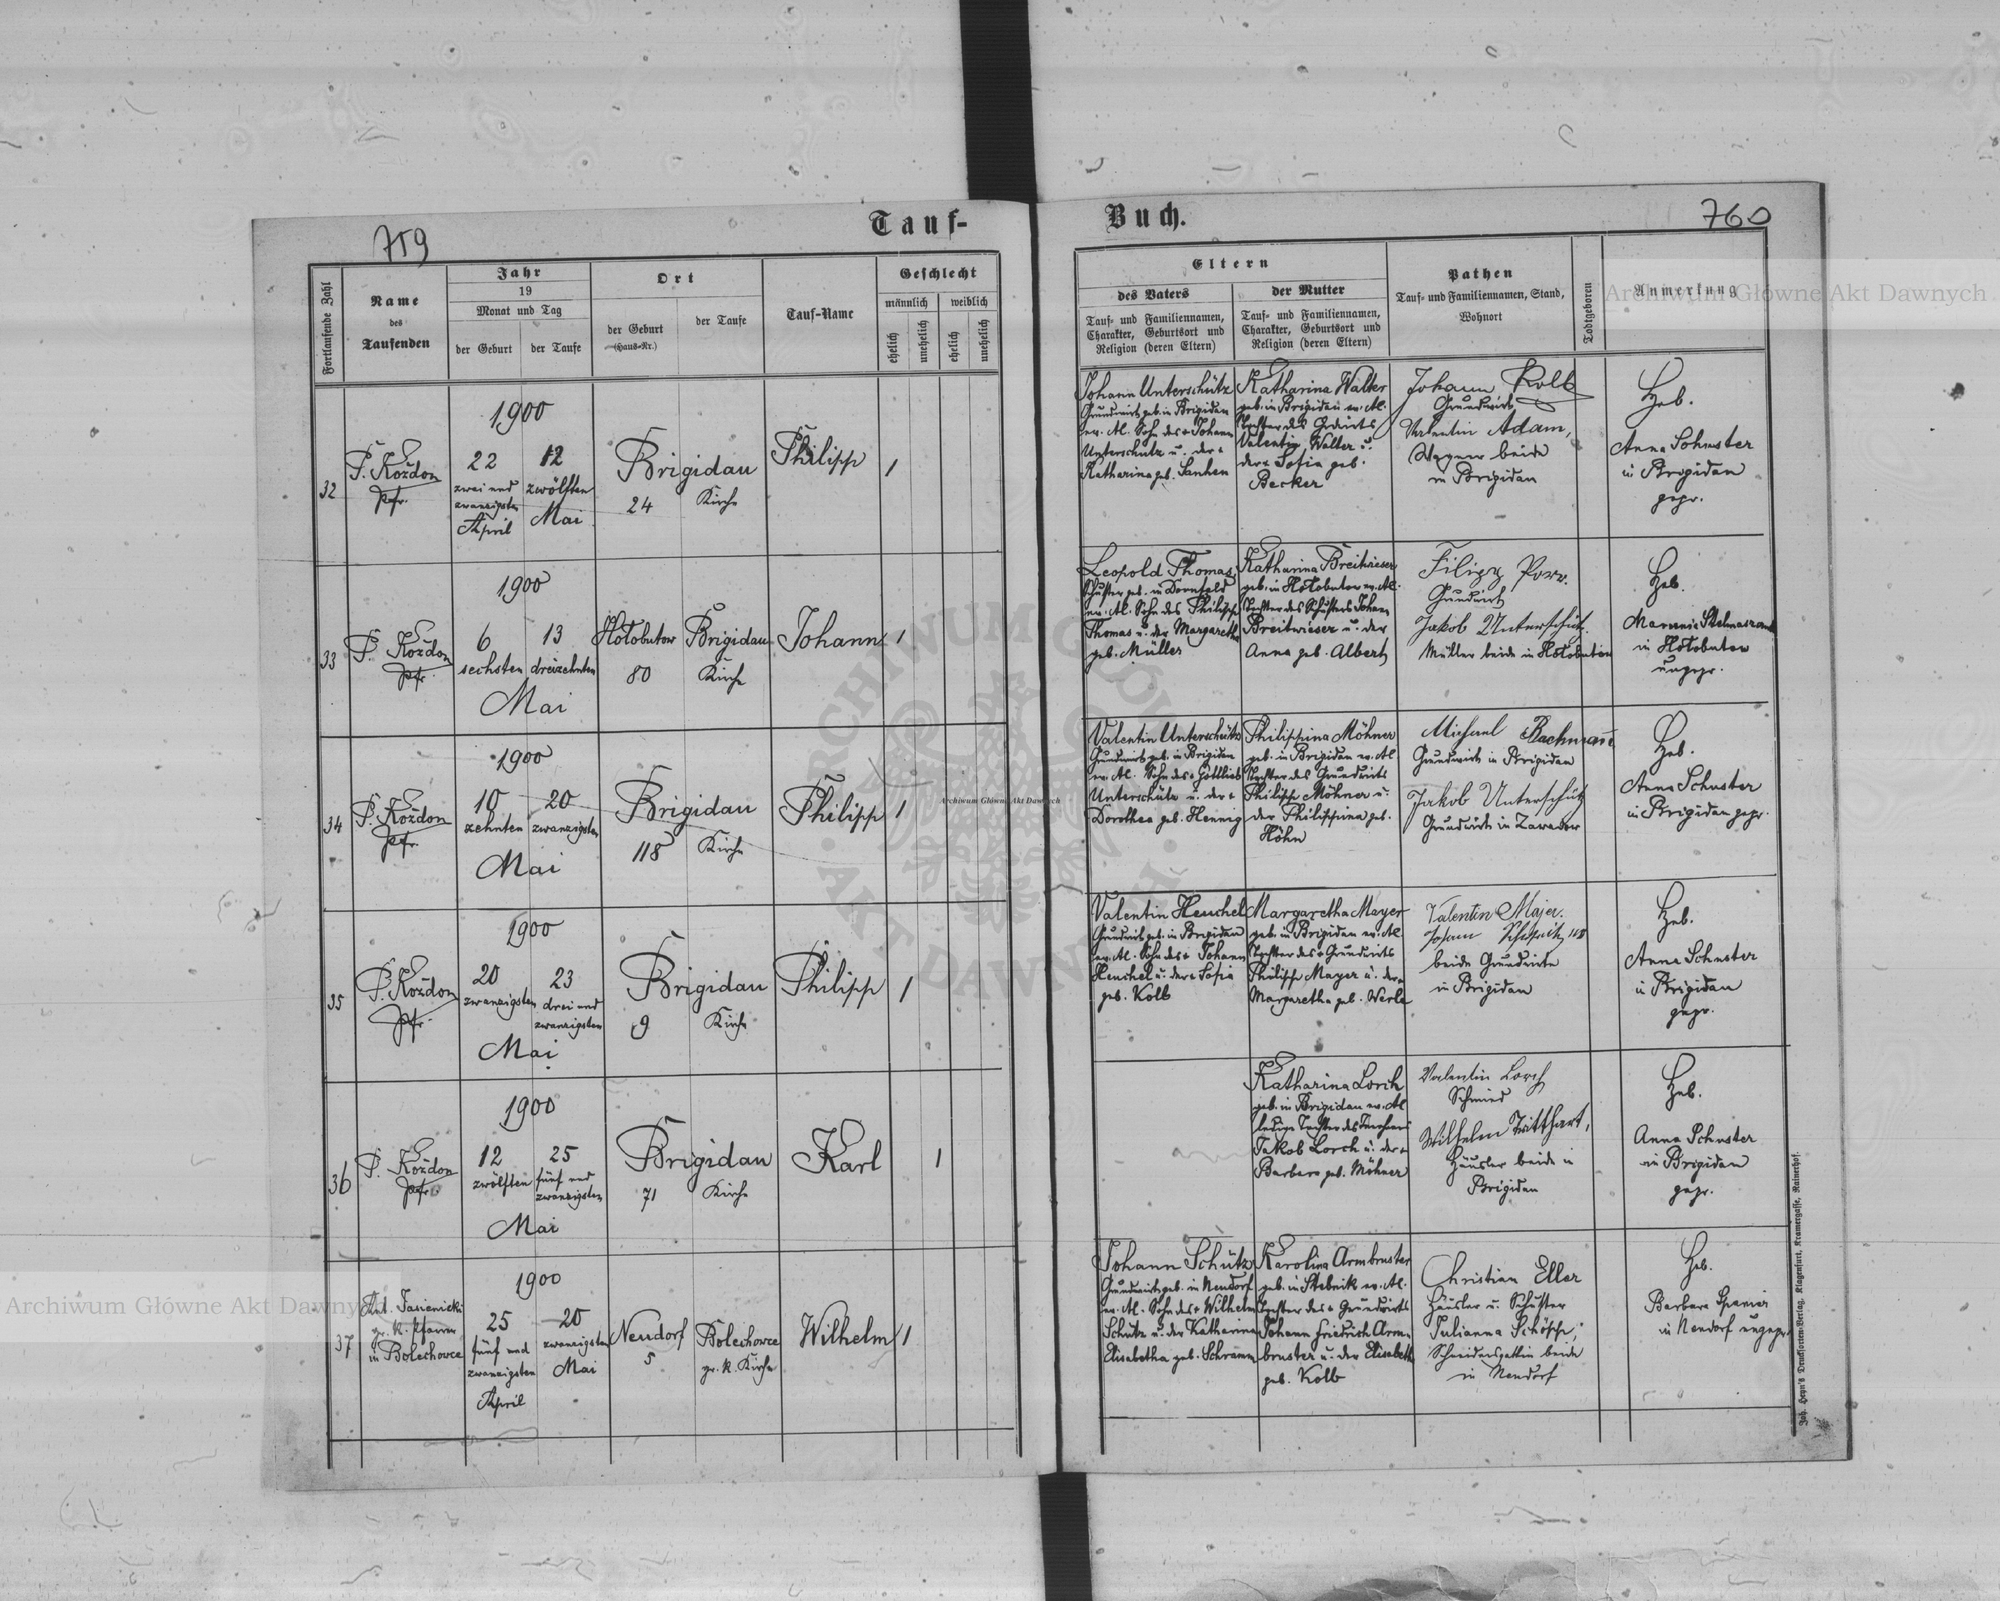 759
Tauf-
Fortlaufende Zahl
Name
des
Taufenden
Jahr
19
Monat und Tag
der Geburt
der Taufe
Ort
der Geburt
(Haus-Nr.)
der Taufe
Tauf-Name
Geschlecht
männlich
weiblich
ehelich
unehelich
ehelich
unehelich
32
P. Koždon
Pfr.
1900
22
zwei und
zwanzigsten
April
12
zwölften
Mai
Brigidau
24
Kirche
Philipp
1
33
P. Koždon
Pfr.
1900
6
sechsten
13
dreizehnten
Mai
Hołobutow
80
Brigidau
Kirche
Johann
1
34
P. Koždon
Pfr.
1900
10
zehnten
20
zwanzigsten
Mai
Brigidau
118
Kirche
Philipp
1
35
P. Koždon
Pfr.
1900
20
zwanzigsten
23
drei und
zwanzigsten
Mai
Brigidau
9
Kirche
Philipp
1
36
P. Koždon
Pfr.
1900
12
zwölften
25
fünf und
zwanzigsten
Mai
Brigidau
71
Kirche
Karl
1
37
Ant. Jasienicki
gr. k. Pfarrer
in Bolechowce
1900
25
fünf und
zwanzigsten
April
20
zwanzigsten
Mai
Neudorf
5
Bolechowce
gr. k. Kirche
Wilhelm
1
Buch.
760
Eltern
des Vaters
Tauf- und Familiennamen,
Charakter, Geburtsort und
Religion (deren Eltern)
der Mutter
Tauf- und Familiennamen,
Charakter, Geburtsort und
Religion (deren Eltern)
Pathen
Tauf- und Familiennamen, Stand,
Wohnort
Todtgeboren
Anmerkung
Johann Unterschütz
Grundwirt geb. in Brigidau
ev. Al. Sohn des + Johann
Unterschütz u. der +
Katharina geb.
Katharina Walter
geb. in Brigidau ev. Al.
Tochter des Grdwirts
Valentin Walter u.
der + Sofia geb.
Becker
Johann Kolb
Grundwirt
Valentin Adam,
Wagner beide
in Brigidau
Heb.
Anna Schuster
in Brigidau
gepr.
Leopold Thomas,
Schuster geb. in Dornfeld
ev. Al. Sohn des Philipp
Thomas u. der Margaretha
geb. Müller
Katharina Breitwieser
geb. in Hołobutow ev. Al.
Tochter des Schusters Johann
Breitwieser u. der
Anna geb. Albert
Filipp
Grundwirt
Jakob Unterschütz
Müller beide in Hołobutow
Heb.
in Hołobutow
ungepr.
Valentin Unterschütz
Grundwirt geb. in Brigidau
ev. Al. Sohn des + Gottlieb
Unterschütz u. der +
Dorothea geb. Hennig
Philippina Möhner
geb. in Brigidau ev. Al.
Tochter des Grundwirts
Philipp Möhner u.
der Philippina geb.
Höhn
Michael Bachmann
Grundwirt in Brigidau
Jakob Unterschütz
Grundwirt in Zawadow
Heb.
Anna Schuster
in Brigidau gepr.
Valentin Heuchel
Grundwirt geb. in Brigidau
ev. Al. Sohn des + Johann
Heuchel u. der + Sofia
geb. Kolb
Margaretha Mayer
geb. in Brigidau ev. Al.
Tochter des + Grundwirts
Philipp Mayer u. der +
Margaretha geb. Werle
Valentin Majer.
Johann
beide Grundwirte
in Brigidau
Heb.
Anna Schuster
in Brigidau
gepr.
Katharina Lorch
geb. in Brigidau ev. Al.
ledige Tochter des
Jakob Lorch u. der +
Barbara geb. Möhner
Valentin Lorch
Schmied
Wilhelm Tritthart,
Häusler beide in
Brigidau
Heb.
Anna Schuster
in Brigidau
gepr.
Johann Schütz
Grundwirt geb. in Neudorf
ev. Al. Sohn des + Wilhelm
Schütz u. der Katharina
Elisabetha geb. Schramm
Karolina Armbruster
geb. in Stebnik ev. Al.
Tochter des + Grundwirts
Johann Friedrich Arm-
bruster u. der Elisabeth
geb. Kolb
Christian Eller
Häusler u. Schuster
Julianna Schöpp,
Schneidersgattin beide
in Neudorf
Heb.
Barbara Spanier
in Neudorf ungepr.
Joh. Heyn's Drucksorten-Verlag, Klagenfurt, Kramergasse, Rainerhof.
Archiwum Główne Akt Dawnych
Archiwum Główne Akt Dawnych
Archiwum Główne Akt Dawnych
ARCHIWUM GŁÓWNE AKT DAWNYCH